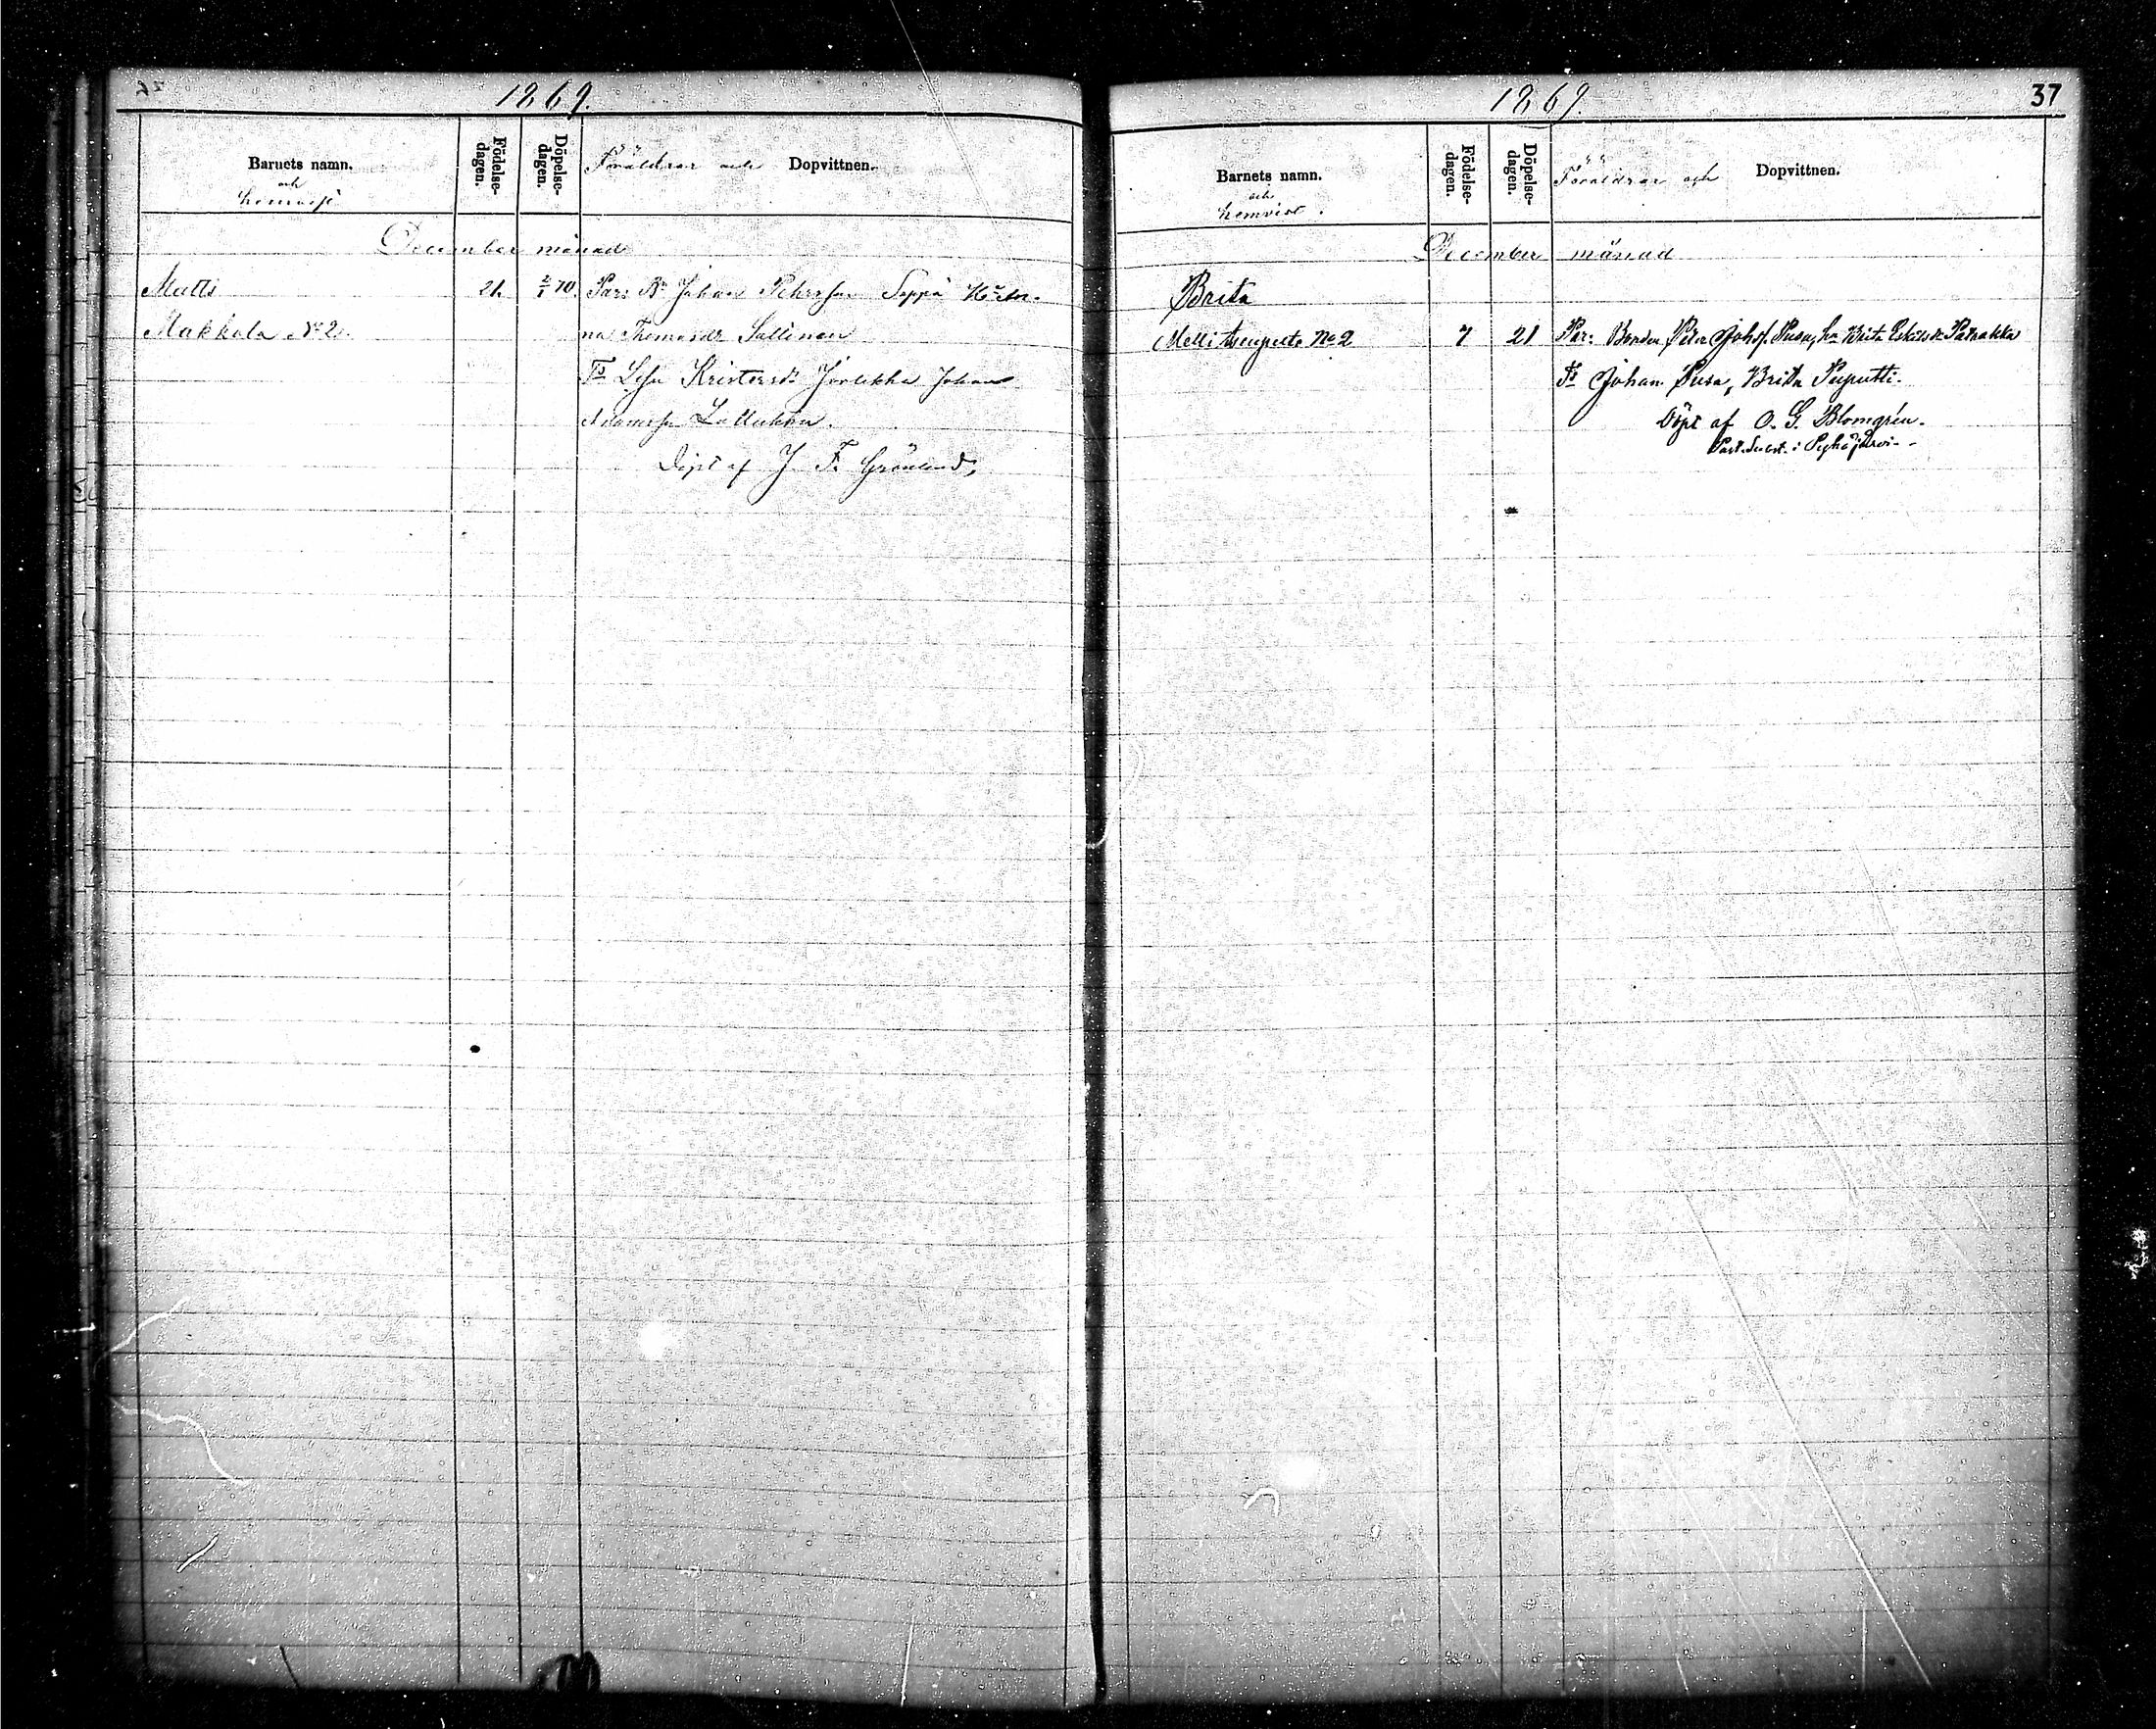 1869.
Barnets namn.
och
hemvist
Födelse-
dagen.
Döpelse-
dagen.
Föräldrar och Dopvittnen.
December månad
Matts
21. 2/1 70. Par: Bn Johan Pehrsson Seppä
Makkola No 2.
na Thomasdr Sallinen
Kristersdr Johan
Adamsson Lallukka.
Döpt af J. F. Grönlund,
1869.
37
Barnets namn.
och
hemvist.
Födelse-
dagen.
Döpelse-
dagen.
Föräldrar och Dopvittnen.
December månad
Brita
No 2 7 21 Par: Bonden Peter Johss. Susa, hu Brita Eskilsdr
Fs Johan Susa, Brita Puputti.
Döpt af O. G. Blomgrén.
i Pyhäjärvi.